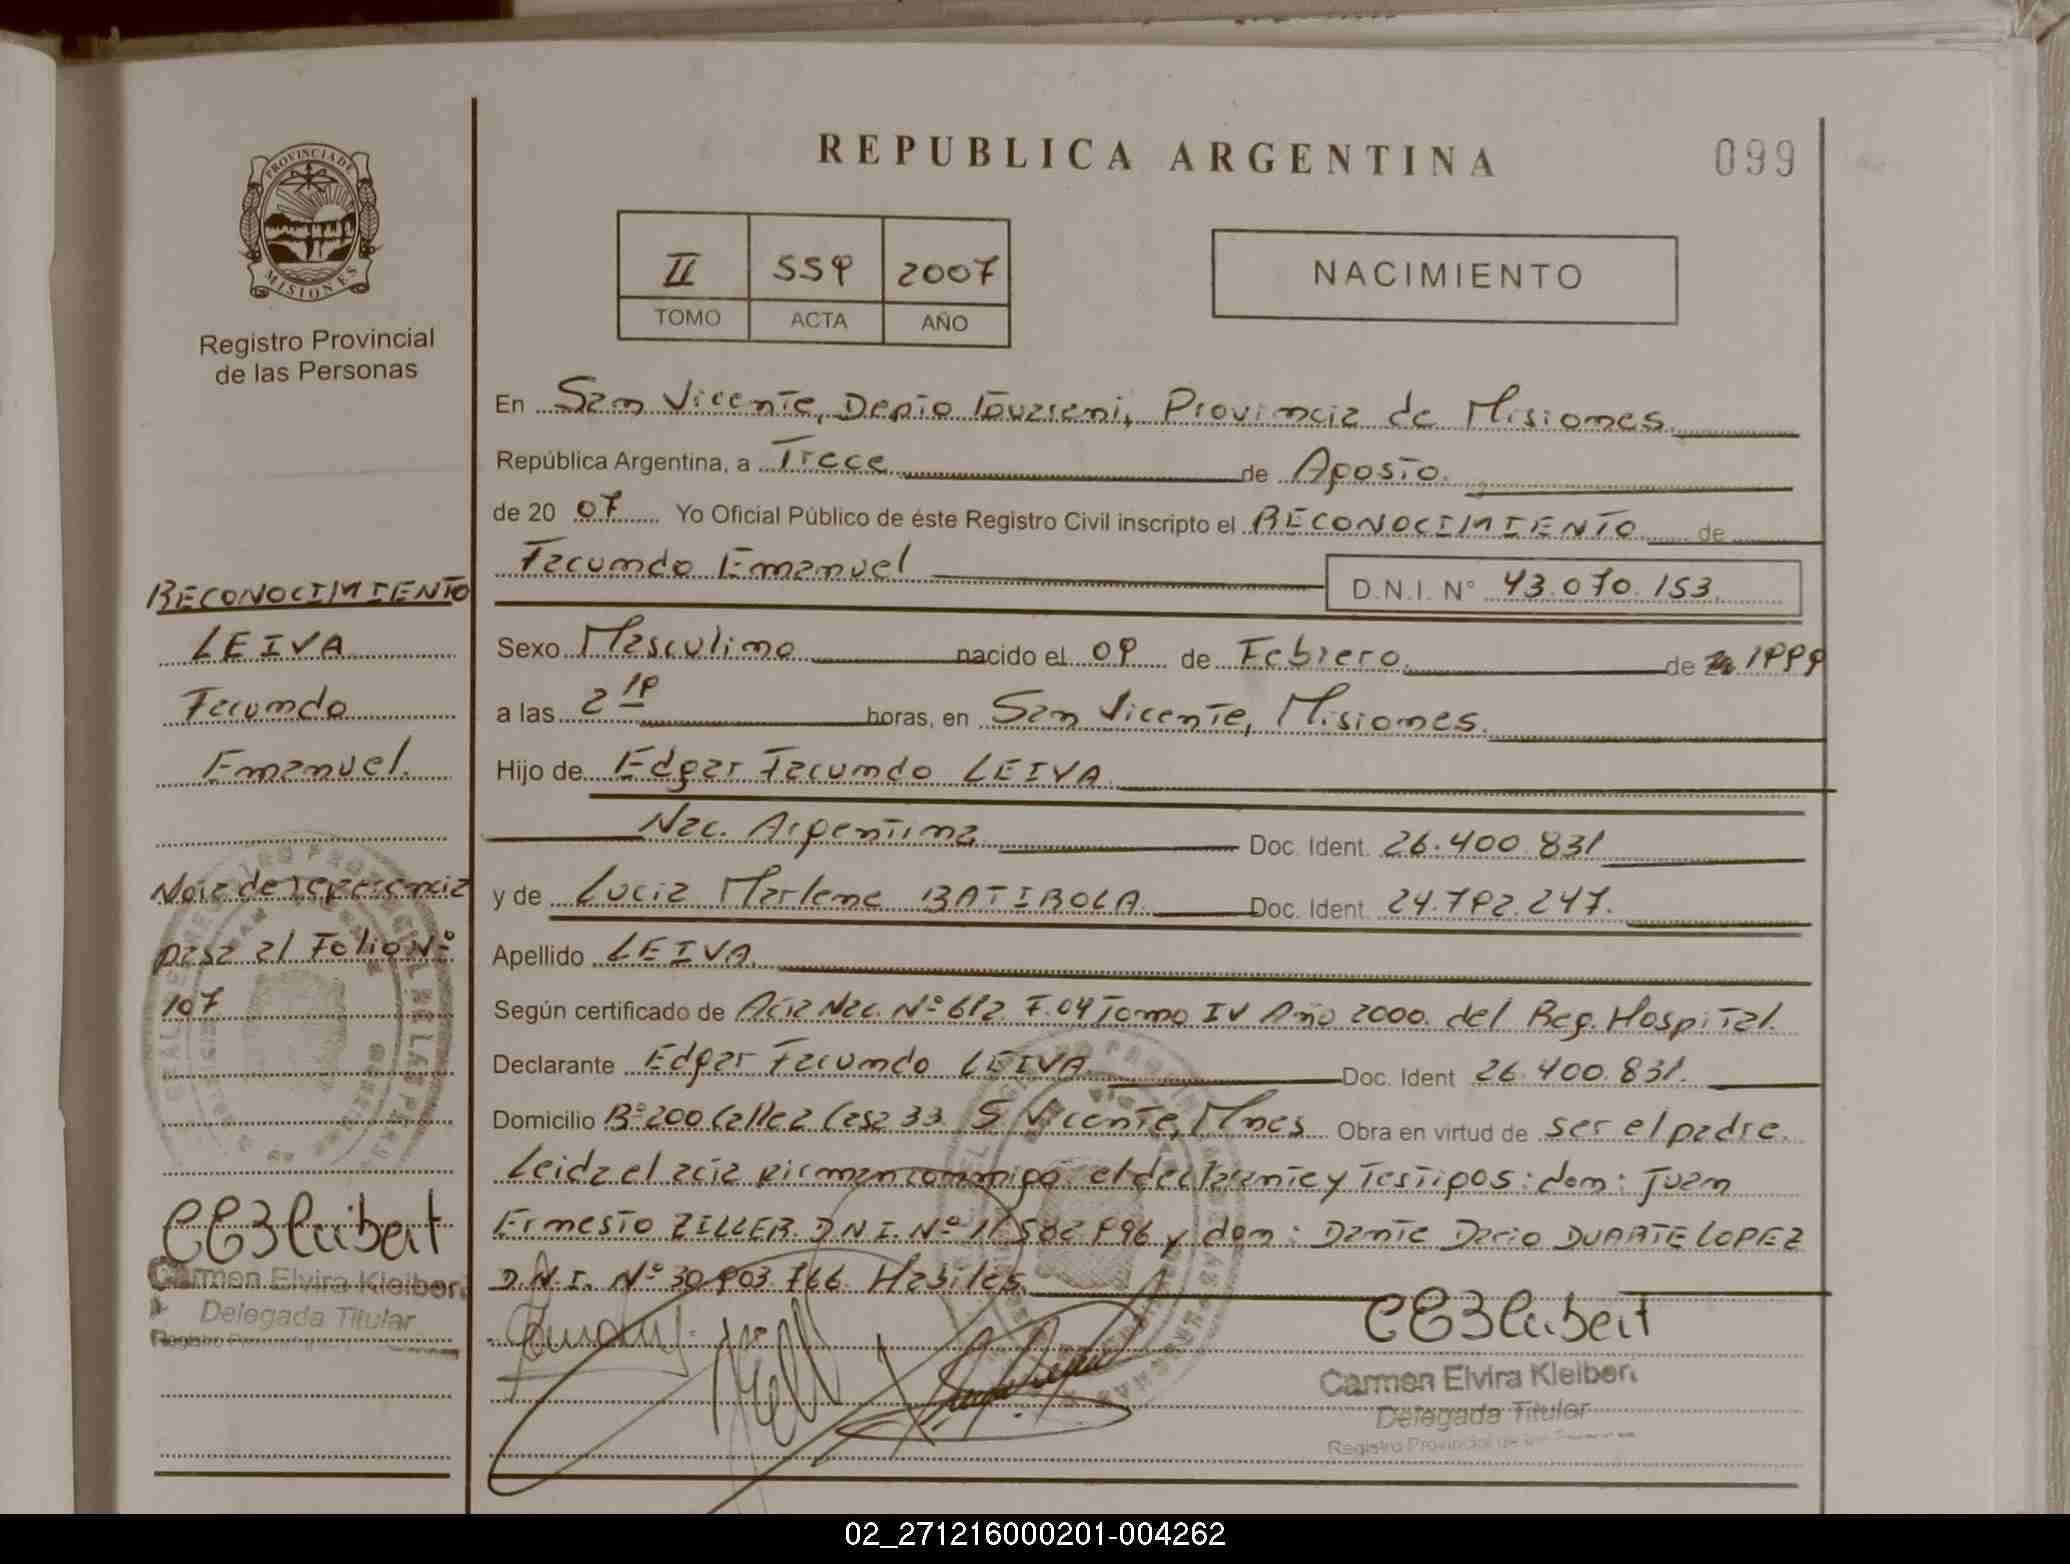 REPUBLICA ARGENTINA
099
PROVINCIA DE
MISIONES
Registro Provincial
de las Personas
II 559 2007
TOMO ACTA AÑO
NACIMIENTO
En San Vicente, Depto Guarani, Provincia de Misiones
República Argentina, a Trece de Agosto.
de 20 07 Yo Oficial Público de éste Registro Civil inscripto el RECONOCIMIENTO de
Facundo Emanuel D.N.I. N° 43.070.153.
Sexo Masculino nacido el 09 de Febrero de 1999
a las 2 19 horas, en San Vicente, Misiones.
Hijo de Edgar Facundo LEIVA
Nac. Argentina Doc. Ident. 26.400.831
y de Lucia Marlene BATIROLA Doc. Ident. 24.792.247.
Apellido LEIVA
Según certificado de Acta Nac. N° 612 F.04 Tomo IV Año 2000. del Reg. Hospital.
Declarante Edgar Facundo LEIVA Doc. Ident 26.400.831.
Domicilio B° 200 Calle 2 Casa 33. S. Vicente, Mnes Obra en virtud de ser el padre.
Leida el acta firman conmigo el declarante y Testigos: don: Juan
Ernesto ZILLER. D.N.I. N° 11.502.996 y don: Dante Dario DUARTE LOPEZ
D.N.I. N° 30.903.766. Habiles.
CEKleibert
Carmen Elvira Kleibert
Delegada Titular
Registro Provincial de las
RECONOCIMIENTO
LEIVA
Facundo
Emanuel.
Nota de referencia
pasa al Folio N°
107
CEKleibert
Carmen Elvira Kleibert
Delegada Titular
02_271216000201-004262